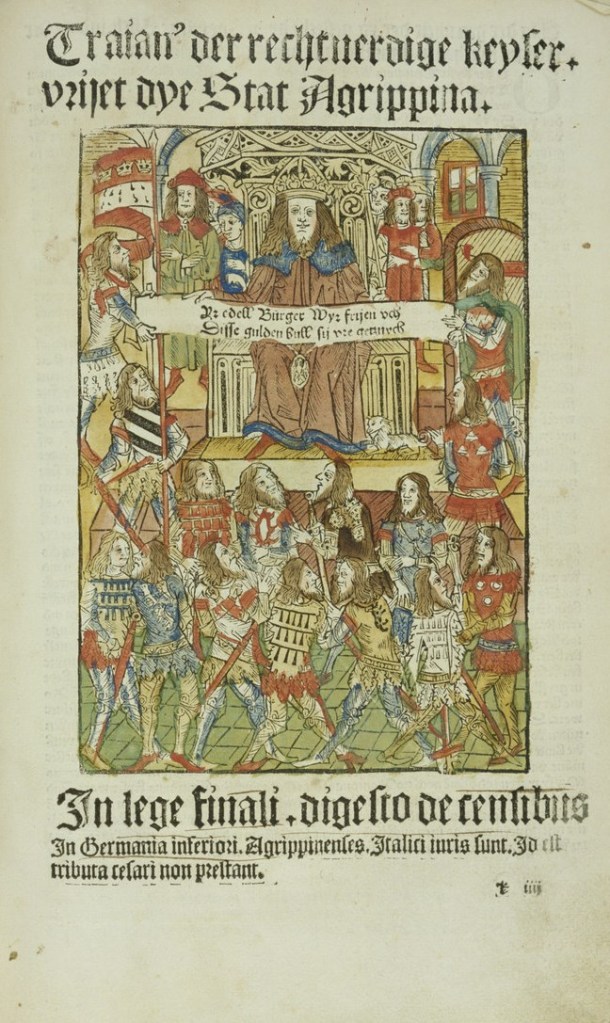 Traianꝰ der rechtuerdige keyser.
vrijet dye Stat Agrippina.
Yr edell Burger Wyr frijen vch
Disse gulden bull sij vre getzuych
In lege finali. digesto de censibus
In Germania inferiori. Agrippinenses. Italici iuris sunt. Id est
tributa cesari non prestant.
iiij